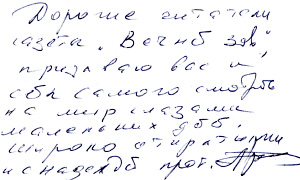 Дорогие читатели
газеты „Вечнб зов"
призываю вас и
себя самого смотреть
на мир глазами
маленьких
широко открытыми
и с надеждой прот.